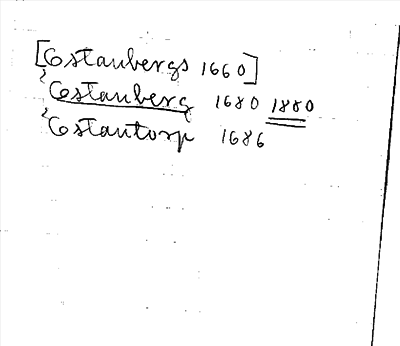 [Östanbergs 1660]
Östanberg 1680 1880
Östantorp 1686